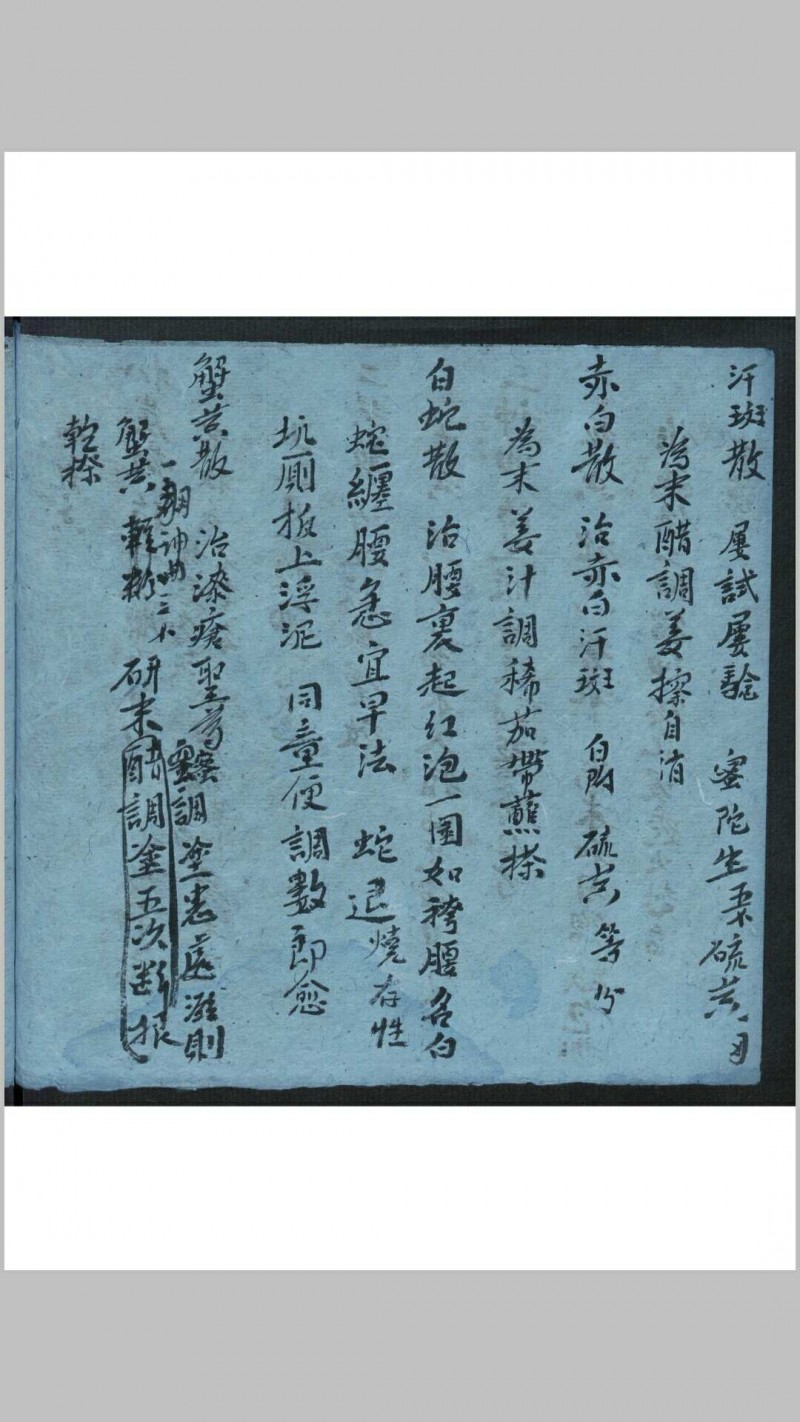 汗斑散 屢試屢驗 蜜陀生 硫黄
為末醋調姜擦自消
赤白散 治赤白汗斑 白附 硫黄 等分
為末姜汁調稀茄帶蘸搽
白蛇散 治腰裏起红泡一圍如袴腰名白
蛇纏腰急宜早法 蛇退燒存性
坑厠板上浮泥 同童便調敷即愈
蟹黄散 治漆瘡聖方 蜜調塗患處濕則
蟹黄 輕粉 研末醋調塗五次断根
乾搽